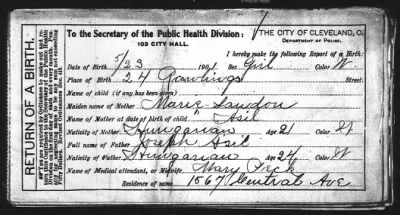 To the Secretary of the Public Health Division:
THE CITY OF CLEVELAND, O.
102 CITY HALL.
DEPARTMENT OF POLICE.
I hereby make the following Report of a Birth.
Date of Birth 5/23 1901 Sex Girl Color W.
Place of Birth 24 Rawlings Street.
Name of child (if any has been given)
Maiden name of Mother Marie
Name of Mother at date of birth of child " Asil
Nativity of Mother Hungarian Age 21 Color W
Full name of Father Joseph Asil
Nativity of Father Hungarian Age 24 Color W
Name of Medical attendant, or Midwife, Mary Peck
Residence of same 1567 Central Ave
RETURN OF A BIRTH.